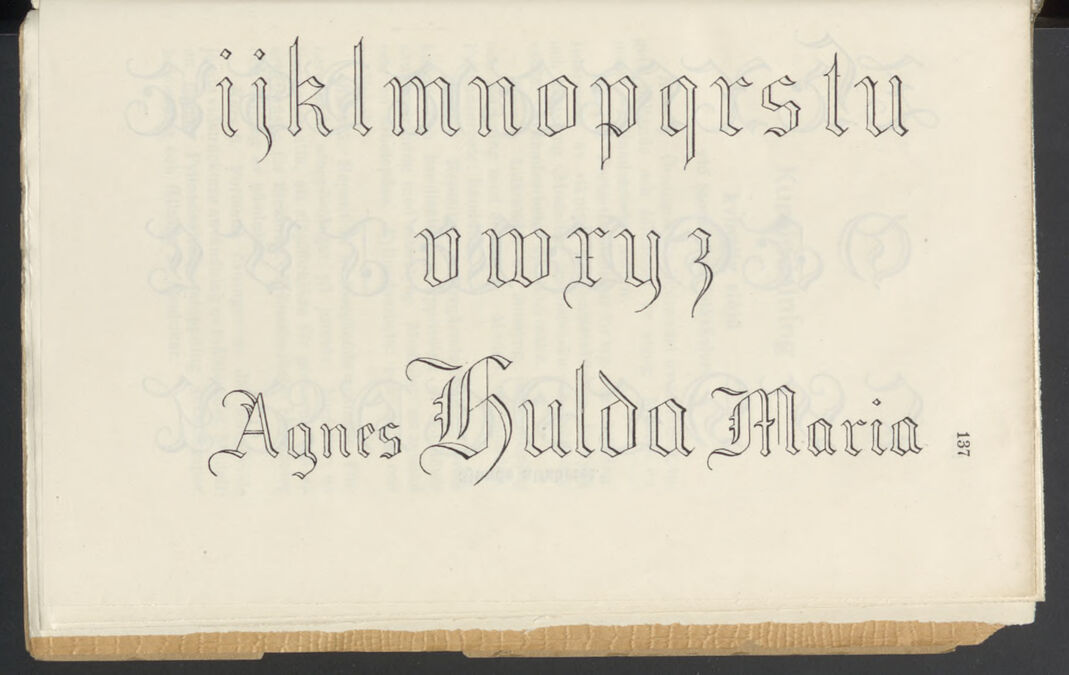 ijklmnopqrstu
vwxyz
Agnes Hulda Maria
137